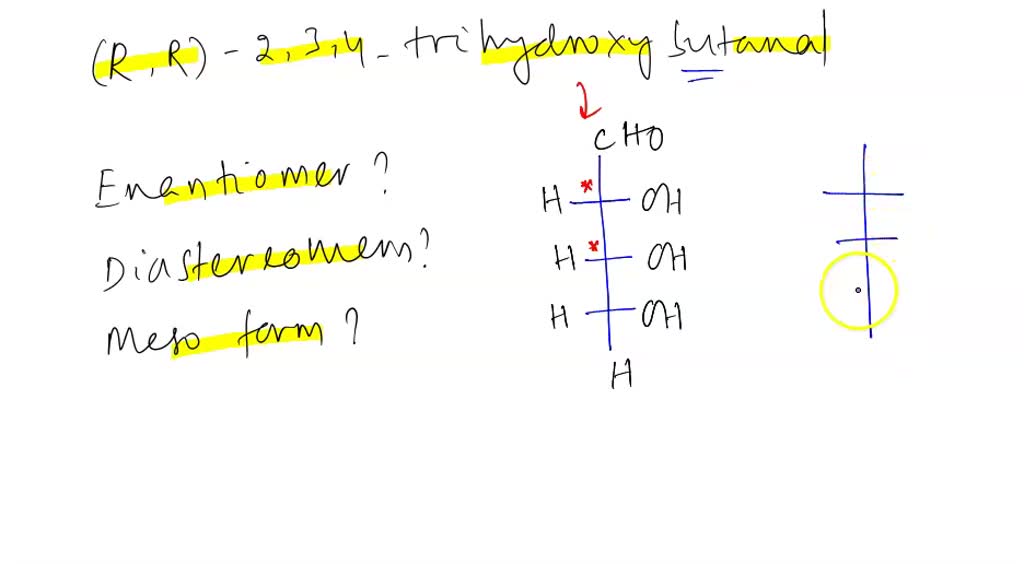 (R, R) - 2,3,4- trihydroxy butanal
CHO
Enantiomer?
H * OH
Diastereomers?
H * OH
Meso form?
H OH
H